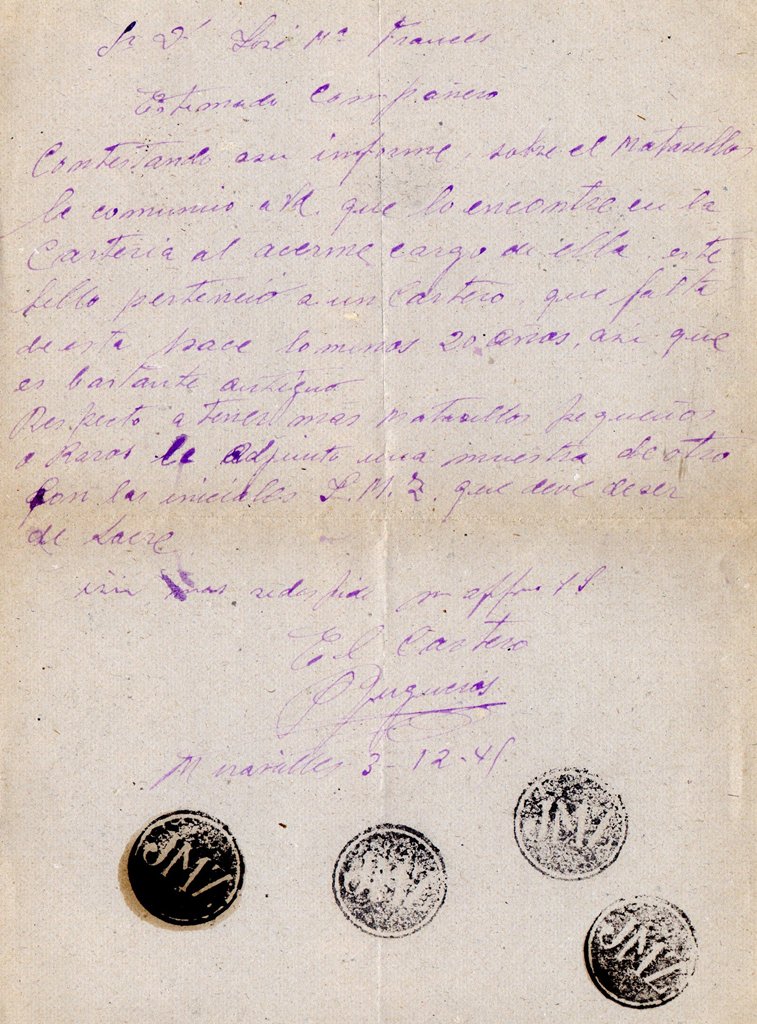 Sr D. José Mª Frances
Estimado Compañero
Contestando asu informe, sobre el Matasellos
le comunico a Vd. que lo encontre en la
Carteria al acerme cargo de ella, este
sello pertenció a un Cartero, que falta
de esta hace lo menos 20 años, asi que
es bastante antiguo
Respecto a tener mas Matasellos pequeños
o Raros le adjunto una muestra de otro
Con las iniciales J.M.Z. que deve de ser
de Lacre
sin mas sedespide su affmo S S
El Cartero
Miravalles 3-12-45
JMZ
JMZ
JMZ
JMZ